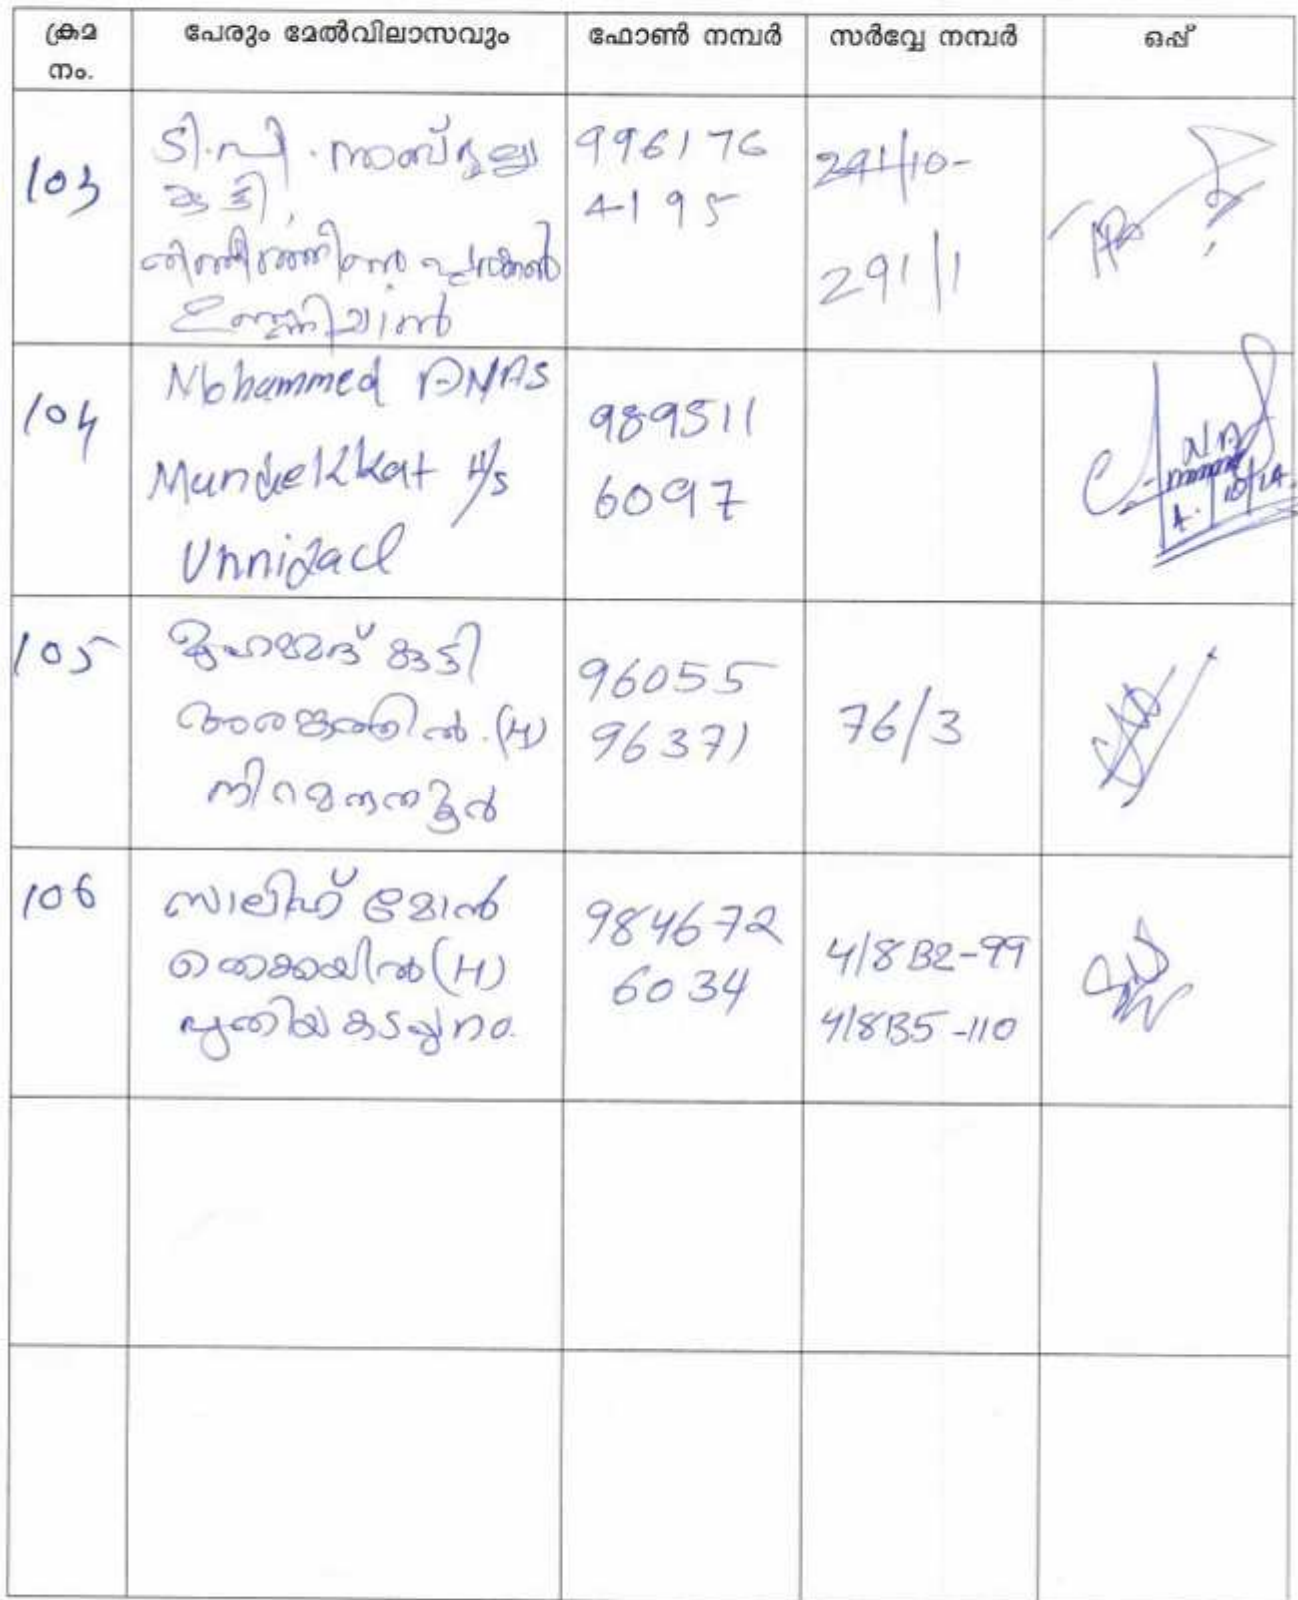 ക്രമ നം.
പേരും മേൽവിലാസവും
ഫോൺ നമ്പർ
സർവ്വേ നമ്പർ
ഒപ്പ്
103
ടി.പി.
കുട്ടി,
996176
4195
291/10-
291/1
104
Mohammed ANAS
Mundekkat H/s
989511
6097
105
മുഹമ്മദ് കുട്ടി
അരങ്ങത്തിൽ.(H)
നിറമരുതൂർ
96055
96371
76/3
106
സാലിഹ് മോൻ
തെക്കെയിൽ(H)
പുതിയ കടപ്പുറം.
984672
6034
4/8 B2-99
4/8B5-110